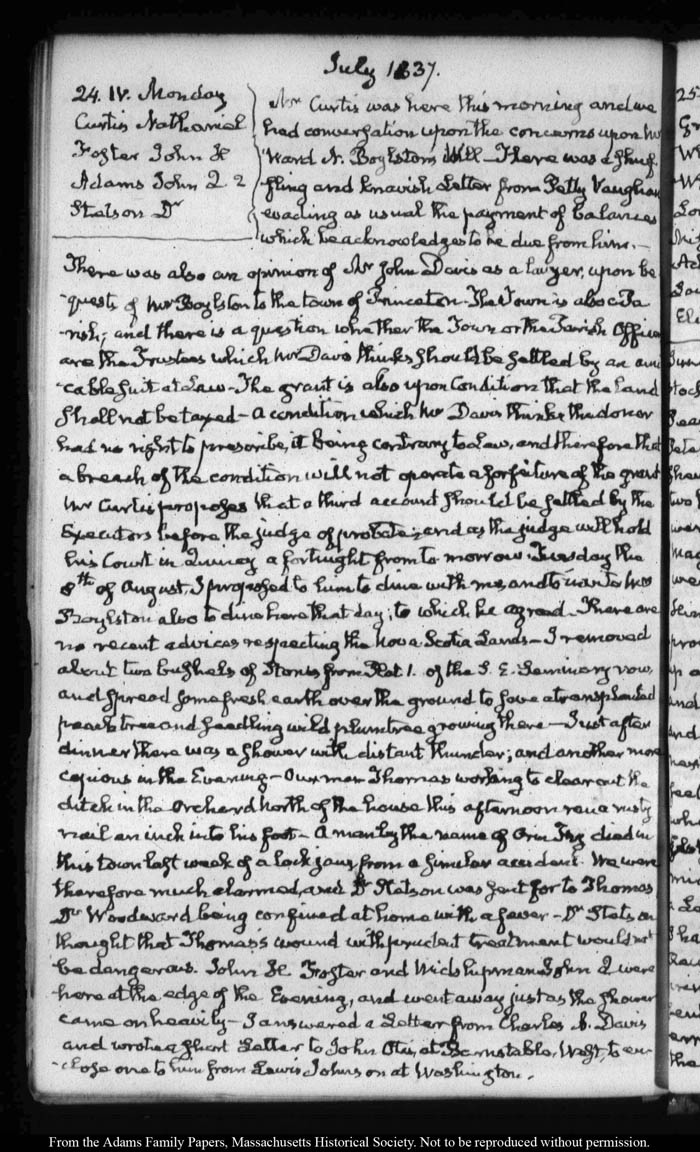 July 1837.
24. IV. Monday
Curtis Nathaniel
Foster John H
Adams John Q. 2
Stetson Dr
Mr Curtis was here this morning and we
had conversation upon the concerns upon
Ward N. Boylston's Will — There was a shuf-
fling and knavish Letter from Petty Vaughan
evading as usual the payment of balances
which he acknowledges to be due from him. —
There was also an opinion of Mr John Davis as a lawyer, upon be-
quests of Mr Boylston to the town of Princeton. The Town is also a Pa-
-rish; and there is a question whether the Town or the Parish Officers
are the Trustees which Mr Davis thinks should be settled by an ami-
-cable suit at Law — The grant is also upon Condition that the Land
shall not be taxed — a condition which Mr Davis thinks the donor
had no right to prescribe, it being contrary to Law, and therefore that
a breach of the condition will not operate a forfeiture of the grant
Mr Curtis proposes that a third account should be settled by the
Executors before the judge of probate; and as the judge will hold
his Court in Quincy a fortnight from to morrow Tuesday the
8th of August, I proposed to him to dine with me, and to Mrs
Boylston also to dine here that day; to which he agreed. There are
no recent advices respecting the Nova Scotia Lands — I removed
about two bushels of Stones from Plat 1. of the S. E. Seminary row,
and spread some fresh earth over the ground to save a transplanted
peach tree and seedling wild plumtree growing there — Just after
dinner there was a shower with distant thunder; and another more
copious in the Evening — Our man Thomas working to clear out the
ditch in the Orchard North of the house this afternoon ran a rusty
nail an inch into his foot — A man by the name of died in
this town last week of a lock jaw, from a similar accident. We were
therefore much alarmed, and Dr Stetson was sent for to Thomas
Dr Woodward being confined at home with a fever — Dr Stetson
thought that Thomas's wound with prudent treatment would not
be dangerous. John H. Foster and Midshipman John Q were
here at the edge of the Evening, and went away just as the shower
came on heavily — I answered a Letter from Charles S. Davis
and wrote a short Letter to John Otis, at Barnstable, to en-
-close one to him from Lewis Johnson at Washington.
From the Adams Family Papers, Massachusetts Historical Society. Not to be reproduced without permission.